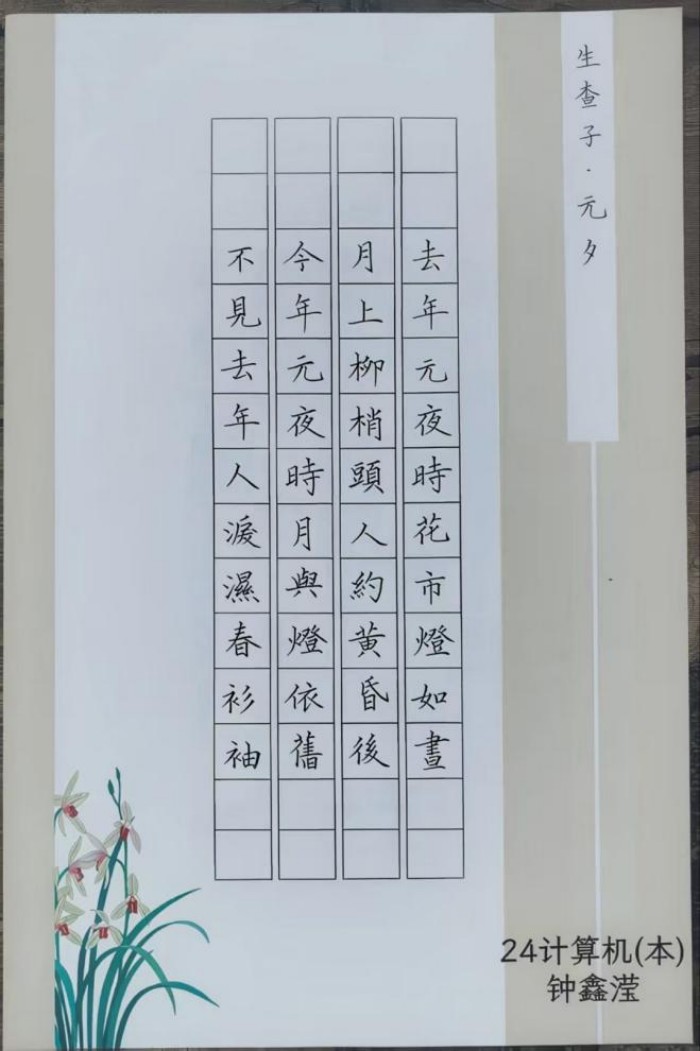 生查子·元夕
去年元夜時花市燈如晝
月上柳梢頭人約黃昏後
今年元夜時月與燈依舊
不見去年人淚濕春衫袖
24计算机(本)
钟鑫滢